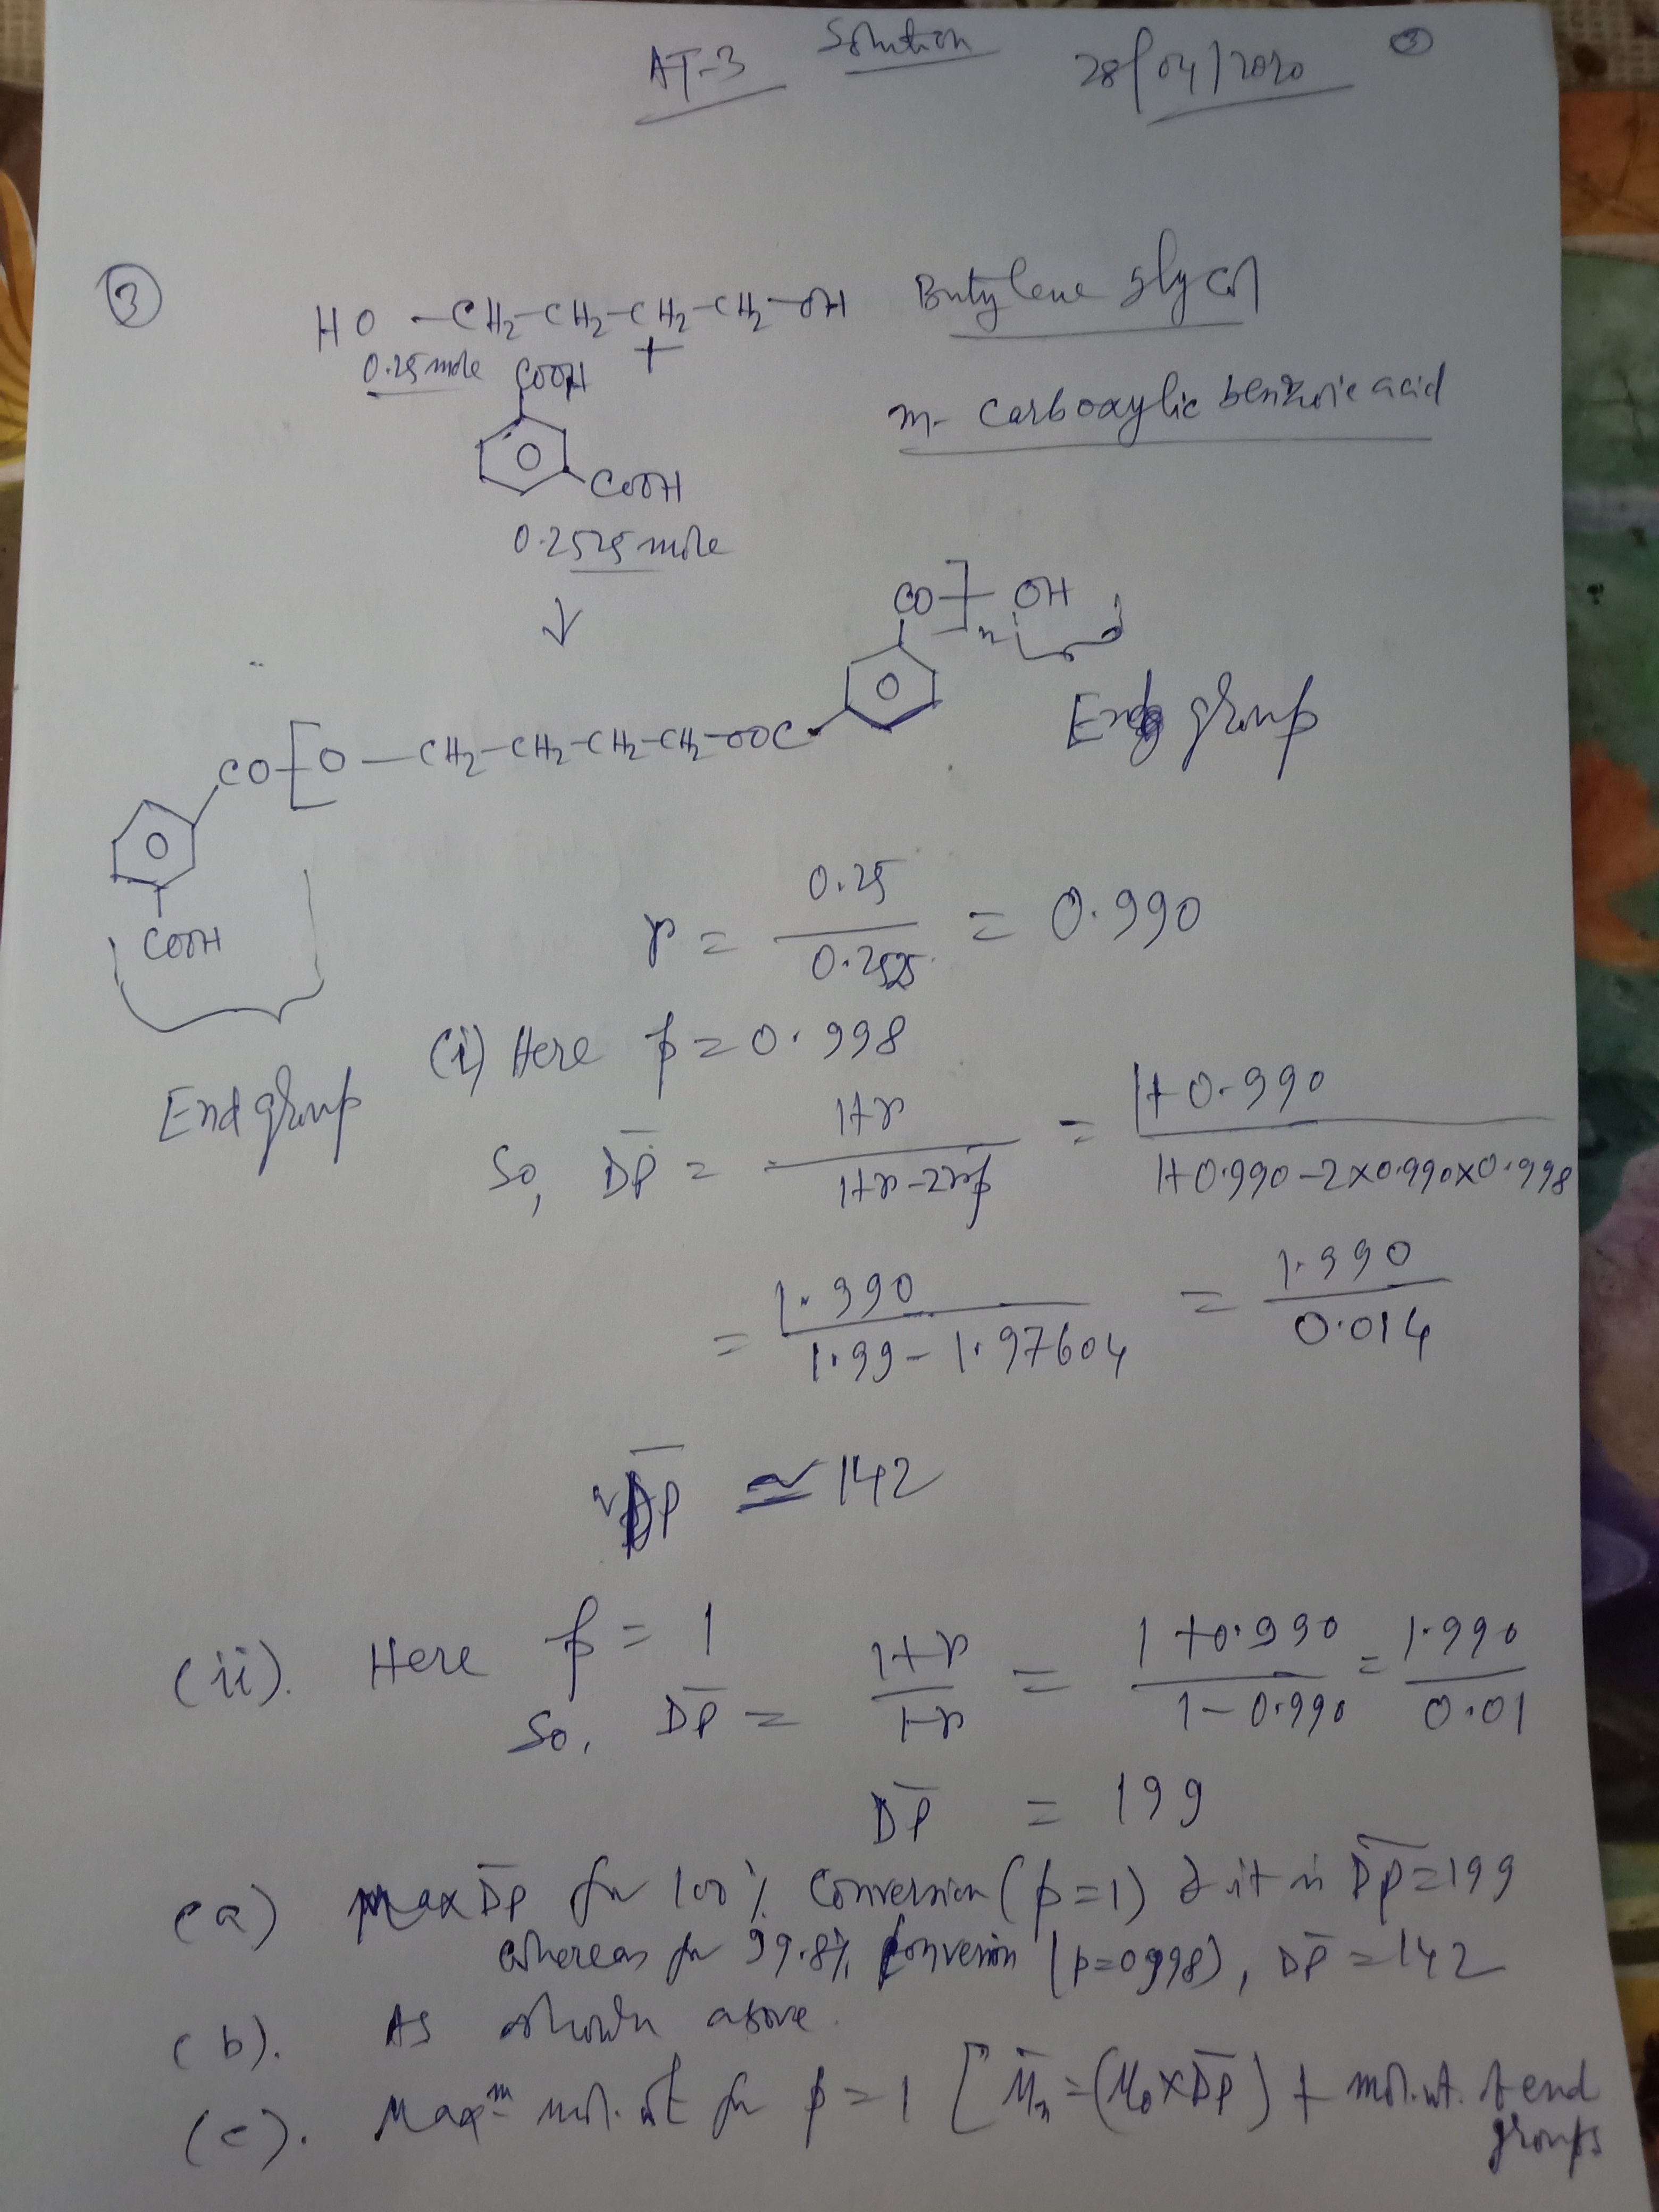 AT-3 Solution 28/04/2020 3
3
HO-CH2-CH2-CH2-CH2-OH Butylene glycol
0.25 mole +
COOH
m- Carboxylic benzoic acid
COOH
0.2525 mole
↓
CO]n OH
End group
CO[O-CH2-CH2-CH2-CH2-OOC
COOH
End group
r = 0.25/0.2525 = 0.990
(i) Here p = 0.998
So, D̅P̅ = 1+r/1+r-2rp = 1+0.990/1+0.990-2×0.990×0.998
= 1.990/1.99-1.97604 = 1.990/0.014
D̅P̅ ≃ 142
(ii). Here p = 1
So, D̅P̅ = 1+r/1-r = 1+0.990/1-0.990 = 1.990/0.01
D̅P̅ = 199
(a) Max D̅P̅ for 100% Conversion (p=1) & it is D̅P̅=199
whereas for 99.8% Conversion (p=0998), D̅P̅=142
(b). As shown above.
(c). Maxm mol. wt for p=1 [M̅n=(M0×D̅P̅)+ mol.wt. of end
groups